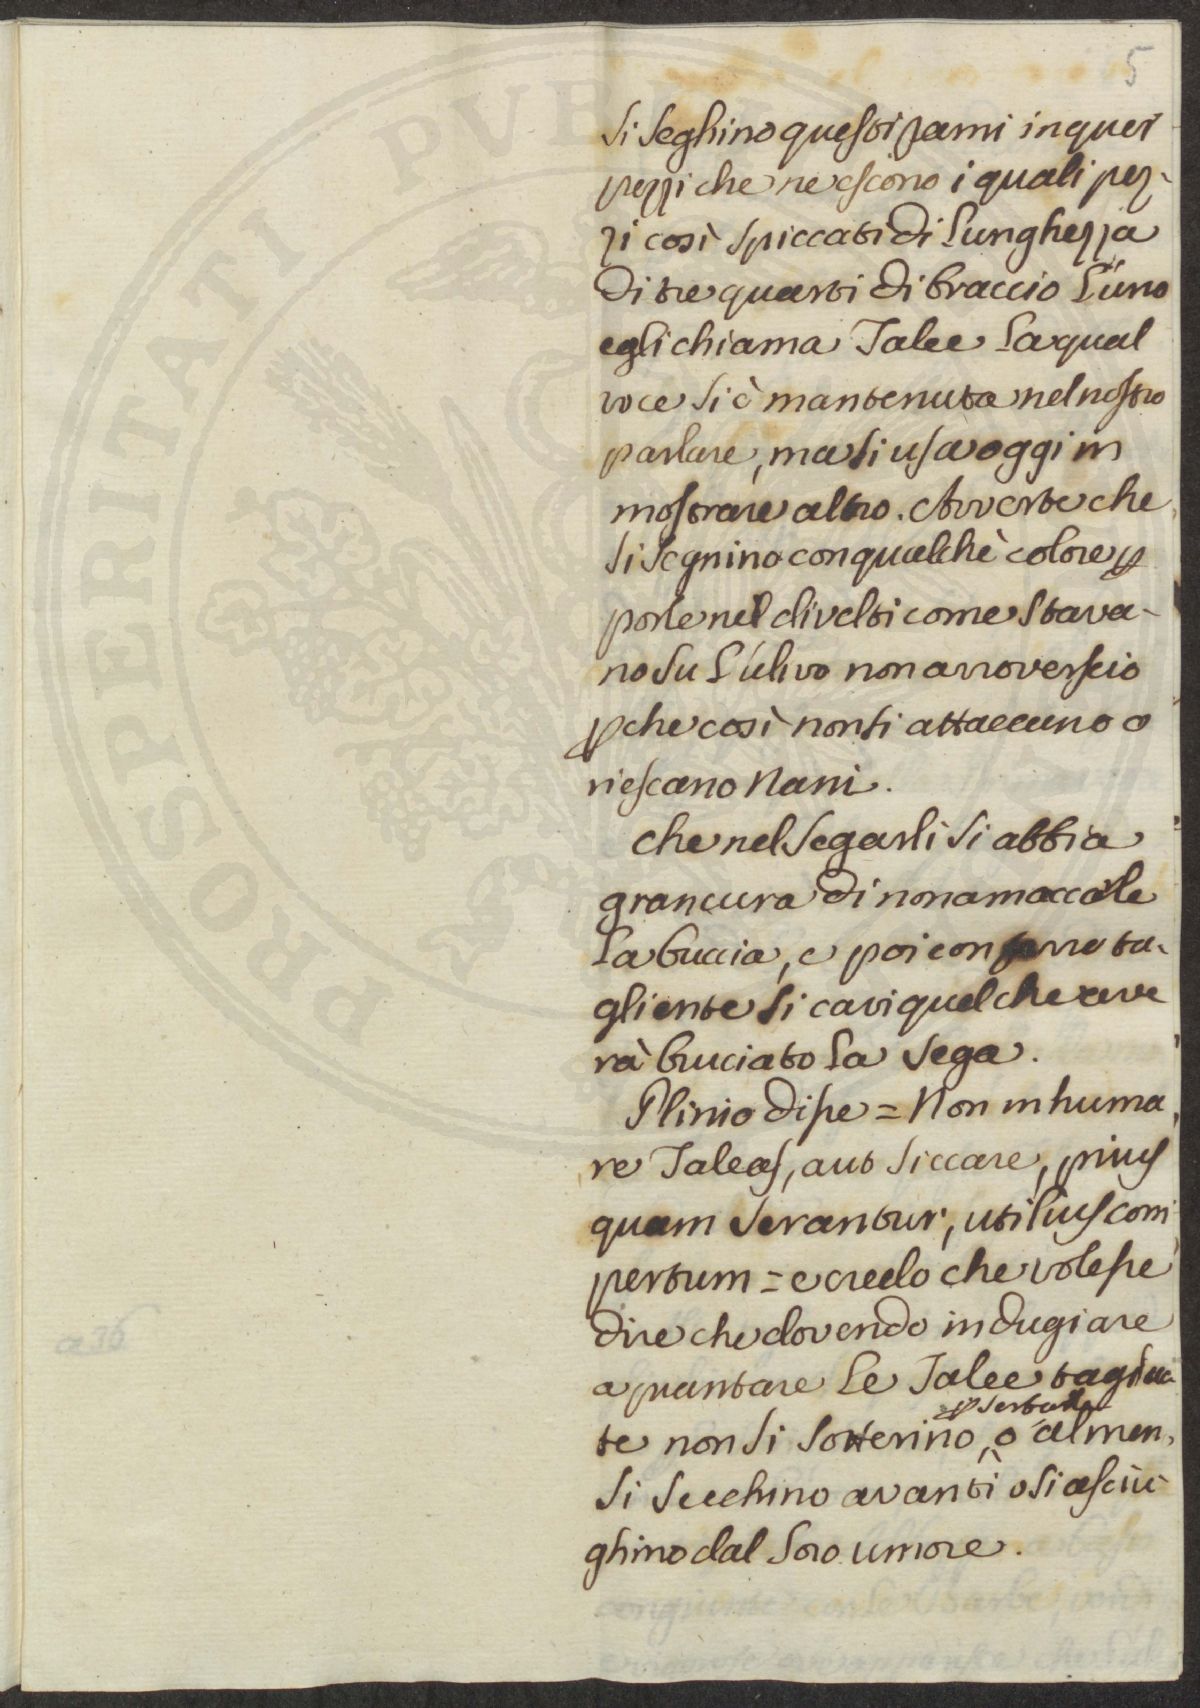 5
Si Seghino questi rami in quei
pezzi che ne escono i quali pez-
zi così spiccati di lunghezza
di tre quarti di braccio l'uno
egli chiama Talee la qual
voce si è mantenuta nel nostro
parlare, ma si usa oggi in
mostrare altro. Avverte che
si segnino con qualchè colore p
porle nel divelti come stava-
no su l'ulivo non arroverscio
pche così non si attaccano o
riescano Nani.
che nel segarli si abbia
gran cura di non amaccale
la buccia, e poi con ferro ta-
gliente si cavi quel che ave
rà bruciato la sega.
Plinio disse = Non inhuma
re Taleas, aut siccare, prius
quam serantur, utilius com
pertum = e credo che volesse
dire che dovendo indugiare
a piantare le Talee taglia
p serbarle
te non si sotterino, o almen,
si secchino avanti o si asciu
ghino dal loro umore.
a 36
PROSPERITATI PUBL